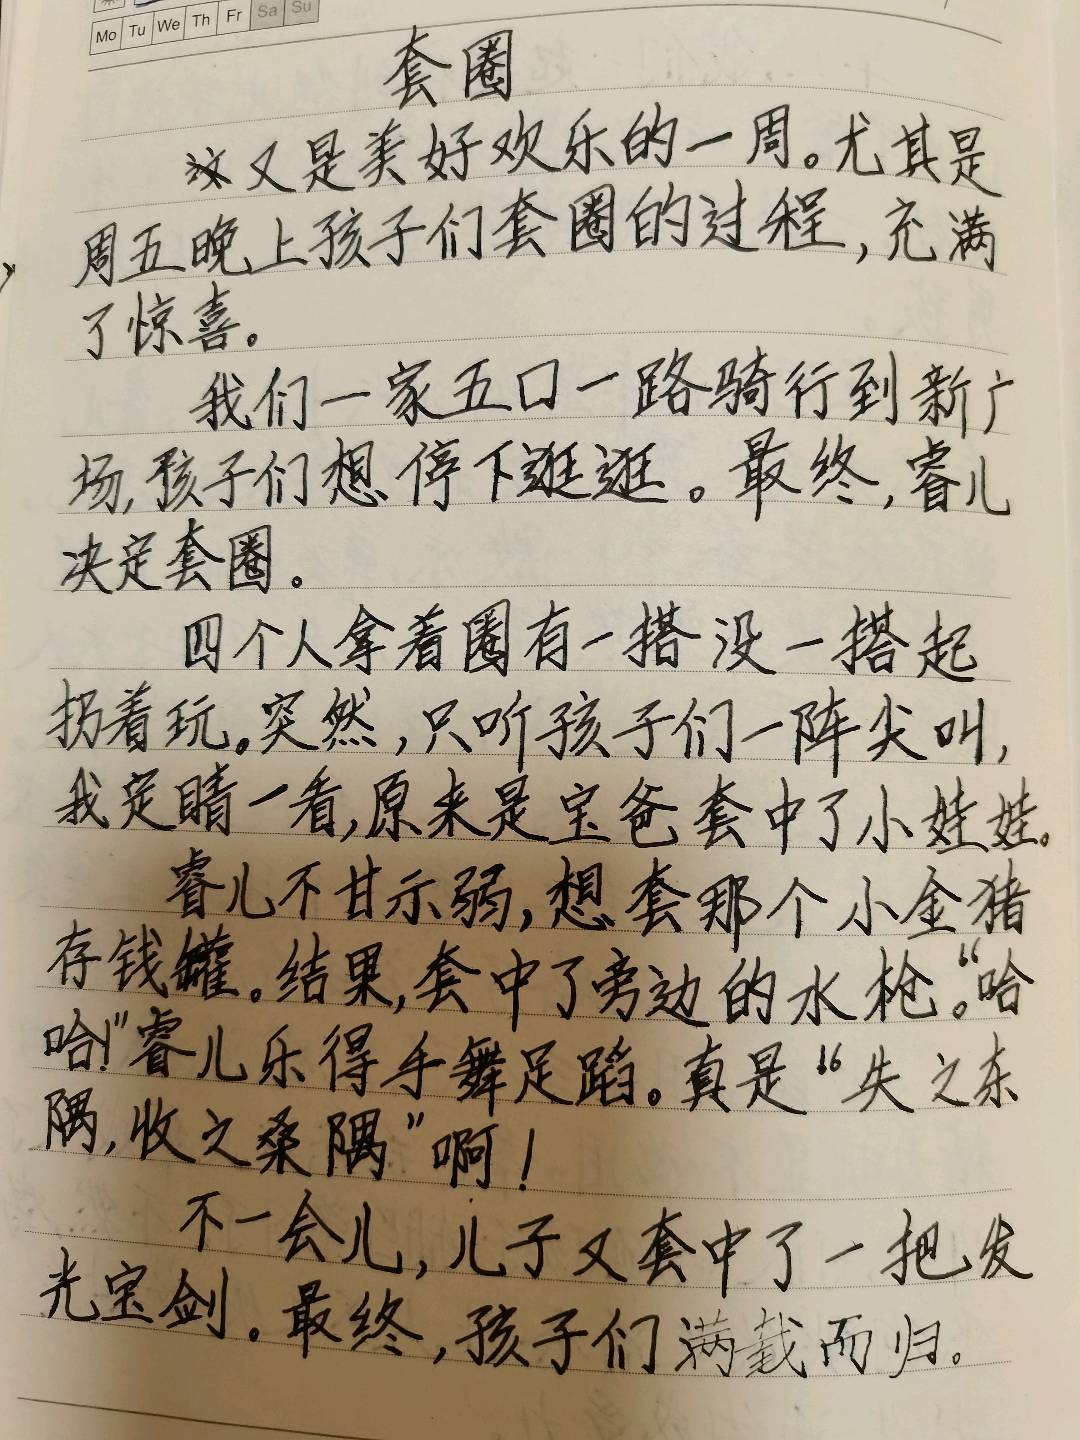 Mo Tu We Th Fr Sa Su
套圈
这又是美好欢乐的一周。尤其是
周五晚上孩子们套圈的过程,充满
了惊喜。
我们一家五口一路骑行到新广
场,孩子们想停下逛逛。最终,睿儿
决定套圈。
四个人拿着圈有一搭没一搭起
扔着玩。突然,只听孩子们一阵尖叫,
我定睛一看,原来是宝爸套中了小娃娃。
睿儿不甘示弱,想套那个小金猪
存钱罐。结果,套中了旁边的水枪。“哈
哈!”睿儿乐得手舞足蹈。真是“失之东
隅,收之桑隅”啊!
不一会儿,儿子又套中了一把发
光宝剑。最终,孩子们满载而归。